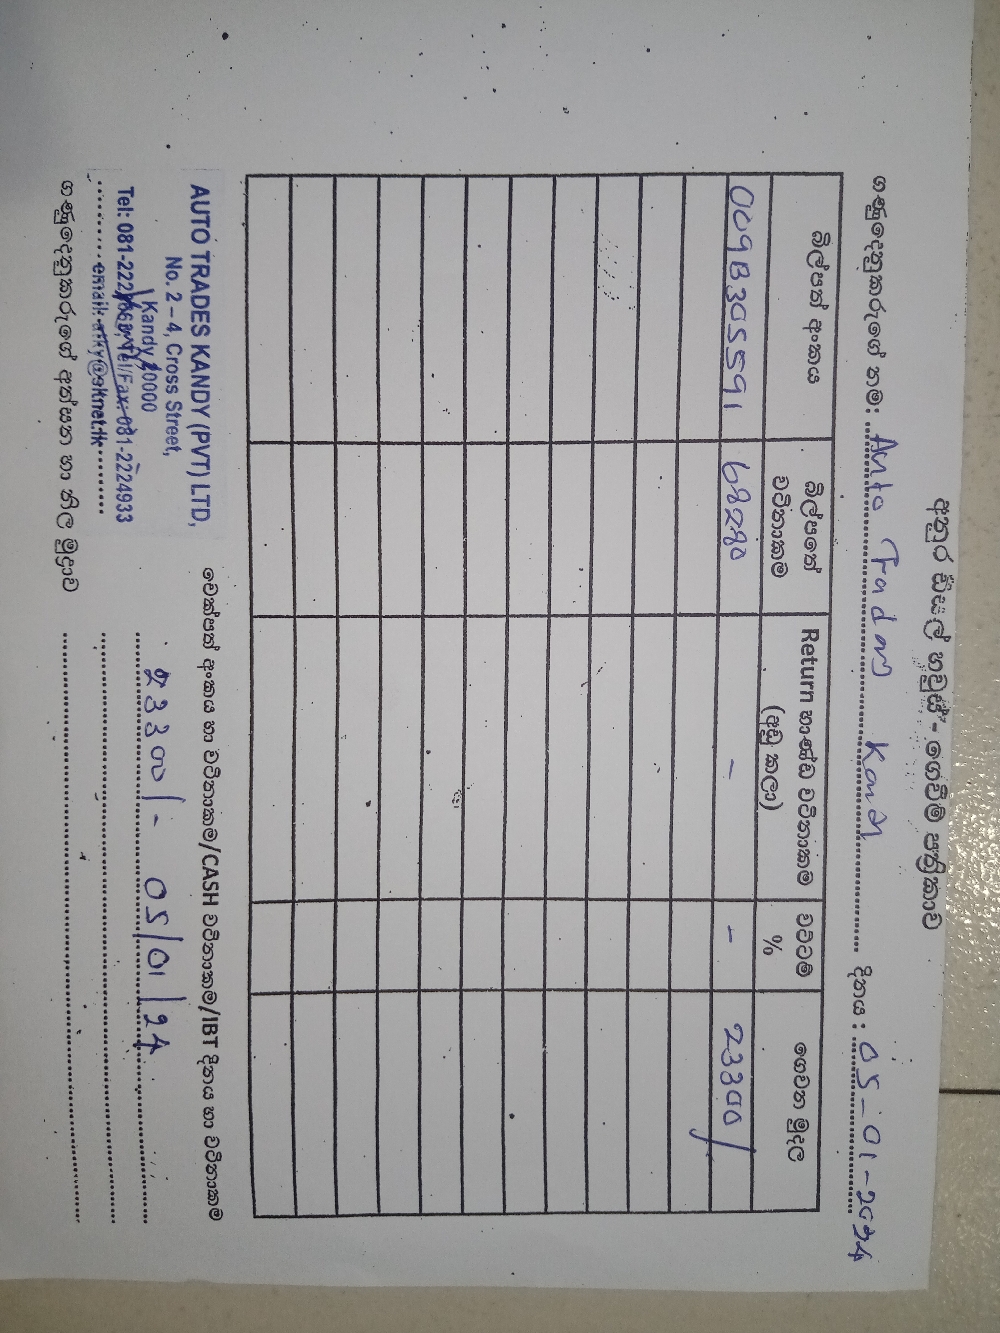 අනුර ඩීසල් හවුස් - ගෙවීම් පත්‍රිකාව
ගණුදෙනුකරුගේ නම: Auto Trades Kandy දිනය : 05-01-2024
බිල්පත් අංකය බිල්පතේ වටිනාකම Return භාණ්ඩ වටිනාකම (අඩු කලා) වට්ටම් % ගෙවන මුදල
009B305591 68280 - - 23300/
චෙක්පත් අංකය හා වටිනාකම/CASH වටිනාකම/IBT දිනය හා වටිනාකම
AUTO TRADES KANDY (PVT) LTD,
No. 2 – 4, Cross Street,
Kandy 20000
Tel: 081-222 Tel/Fax: 081-2224933
email: atky@sltnet.lk
23300/- 05/01/24
ගණුදෙනුකරුගේ අත්සන හා නිල මුද්‍රාව